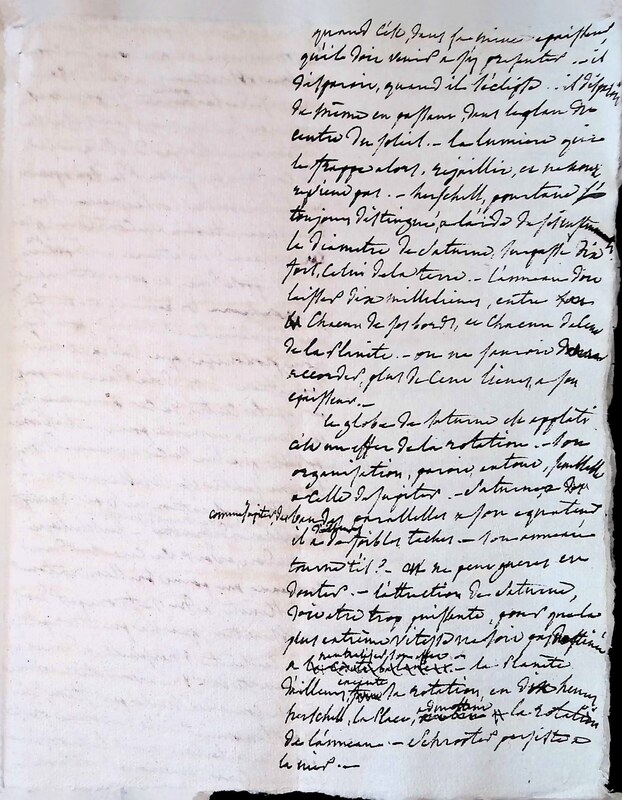 quand c'est, dans sa mince epaisseur
qu'il doit venir a s'y presenter. - il
disparoit, quand il s'eclipse .. il disparoit
de même en passant dans le plan du
centre du soleil. - la lumiere qui
le frappe alors, rejaillit, et ne nous
revient pas. - herschell, pourtant l'a
toujours distingué, a l'aide de ses
le diametre de Saturne, surpasse dix
fois, celui de la terre. - l'anneau doit
laisser dix mille lieues, entre
chacun de ses bords, et chacun de ceux
de la Planête. - on ne sauroit
accorder, plus de cent lieues, a son
epaisseur. -
le globe de saturne est applati
c'est un effet de la rotation. - Son
organisation, paroit, en tout, semblable
a celle de Jupiter. - Saturne, a
comme Jupiter des bandes parallelles a son equateur
il a de foibles taches. - son anneau
tourne t'il ? - on ne peut gueres en
douter. - l'attraction de Saturne,
doit etre trop puissante, pour que la
plus extrême vitesse ne soit pas
a neutraliser son effet. - la Planête
d'ailleurs, execute sa rotation, en dix heures
herschell, la Place, admettent la rotation
de l'anneau. - Schroeter persiste a
la nier. -